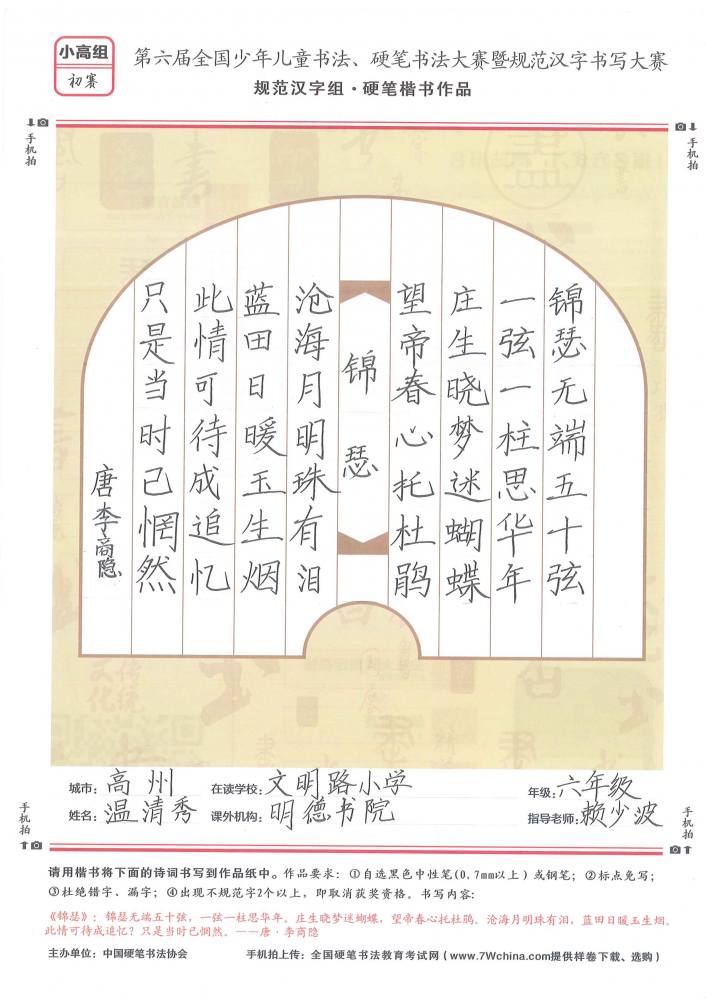 小高组
初赛
第六届全国少年儿童书法、硬笔书法大赛暨规范汉字书写大赛
规范汉字组·硬笔楷书作品
手机拍
手机拍
锦瑟无端五十弦
一弦一柱思华年
庄生晓梦迷蝴蝶
望帝春心托杜鹃
锦瑟
沧海月明珠有泪
蓝田日暖玉生烟
此情可待成追忆
只是当时已惘然
唐李商隐
城市：高州 在读学校：文明路小学 年级：六年级
姓名：温清秀 课外机构：明德书院 指导老师：赖少波
手机拍
手机拍
请用楷书将下面的诗词书写到作品纸中。作品要求：①自选黑色中性笔(0.7mm以上）或钢笔；②标点免写；
③杜绝错字、漏字；④出现不规范字2个以上，即取消获奖资格。书写内容：
《锦瑟》：锦瑟无端五十弦，一弦一柱思华年。庄生晓梦迷蝴蝶，望帝春心托杜鹃。沧海月明珠有泪，蓝田日暖玉生烟。
此情可待成追忆？只是当时已惘然。——唐·李商隐
主办单位：中国硬笔书法协会 手机拍上传：全国硬笔书法教育考试网（www.7Wchina.com提供样卷下载、选购）